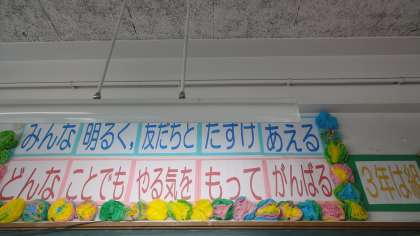 みんな明るく,友だちとたすけあえる
どんなことでもやる気をもってがんばる
3年は